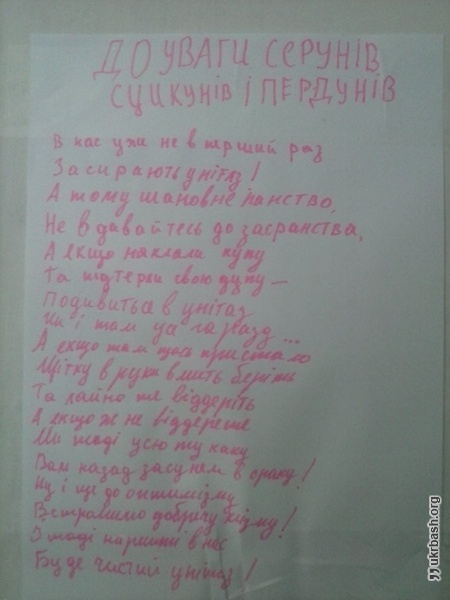 ДО УВАГИ СЄРУНІВ
СЦИКУНІВ І ПЕРДУНІВ
В нас уже не в перший раз
Засирають унітаз!
А тому шановне панство,
Не вдавайтесь до засранства,
А якщо наклали купу
Та підтерли свою дупу –
Подивиться в унітаз
Чи і там усе гаразд...
А якщо там щось пристало
Щітку в руки вмить беріть
Та лайно те віддеріть
А якщо ж не віддерете
Ми тоді усю ту каку
Вам назад засунем в сраку!
Ну, і ще до оптимізму
Встромимо добрячу клізму!
І тоді нарешті в нас
Буде чистий унітаз!
ukrbash.org